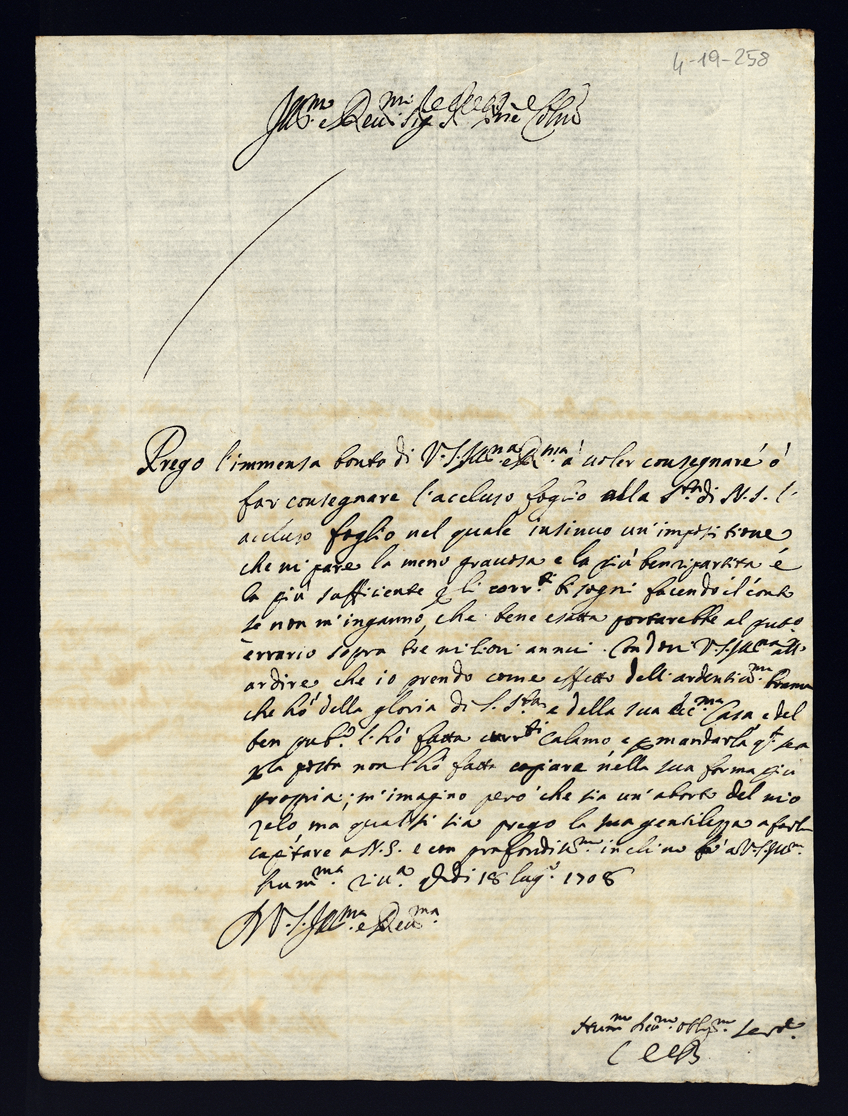 4-19-258
Ill.mo e Rev.mo Sig.
Prego l'immensa bontà di V. S. Ill.ma e R.ma à voler consegnare ó
far consegnare l'accluso foglio alla S.tà di N. S. l'
accluso foglio nel quale insinuo un'impositione
che mi pare la meno gravosa e la più benripartita é
la più sufficiente p gli corr.ti bisogni facendo il conto
se non m'inganno, che bene esatta portarebbe al pub.co
errario sopra tre milioni annui. Condoni V. S. Ill.ma all'
ardire che io prendo come effetto dell'ardentiss.ma brama
che hó della gloria di S. S.tà e della sua Ecc.ma Casa e del
ben pub.co l'hó fatta curr.ti Calamo e p mandarla q.ta sera
p la posta non l'hó fatta copiare nella sua forma più
propria; m'imagino però che sia un'aborto del mio
zelo ma qualsisia prego la sua gentilezza a farlo
capitare a N. S. e con profondiss.mo inclino fò a V. S. Ill.ma
hum.ma riv.a di 18 lug.o 1708
D V. S. Ill.ma e Rev.ma
Hum.mo Div.mo Obblig.mo Serv.e